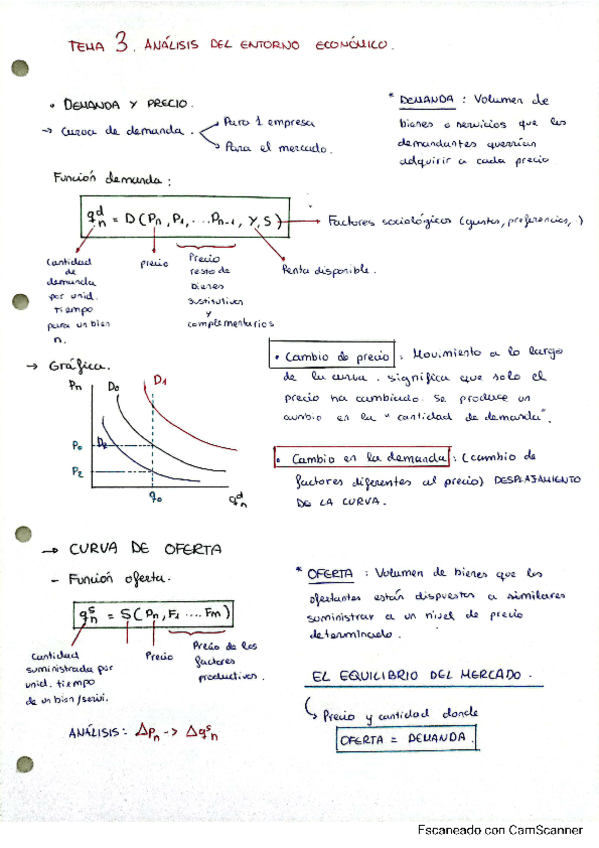 TEMA 3. ANÁLISIS DEL ENTORNO ECONÓMICO.
• DEMANDA Y PRECIO.
→ Curva de demanda.
Para 1 empresa
Para el mercado.
* DEMANDA : Volumen de
bienes o servicios que los
demandantes querrían
adquirir a cada precio
Función demanda:
qdn = D (Pn, P1, ...Pn-1, Y, S)
Factores sociológicos (gustos, preferencias, )
Cantidad
de
demanda
por unid.
tiempo
para un bien
n.
precio
Precio
resto de
bienes
sustitutivos
y
complementarios
Renta disponible.
→ Gráfica.
Pn
D0
D1
P0
D2
P2
q0
qdn
• Cambio de precio : Movimiento a lo largo
de la curva. significa que solo el
precio ha cambiado. Se produce un
cambio en la "cantidad de demanda".
• Cambio en la demanda : (cambio de
factores diferentes al precio) DESPLAJAMIENTO
DE LA CURVA.
→ CURVA DE OFERTA
- Función oferta.
qsn = S( Pn, F1 ... Fm)
Cantidad
suministrada por
unid. tiempo
de un bien/servi.
Precio
Precio de los
factores
productivos.
ANÁLISIS: ΔPn -> Δqsn
* OFERTA : Volumen de bienes que los
ofertantes están dispuestos a similares
suministrar a un nivel de precio
determinado.
EL EQUILIBRIO DEL MERCADO.
↳ Precio y cantidad donde
OFERTA = DEMANDA.
Escaneado con CamScanner